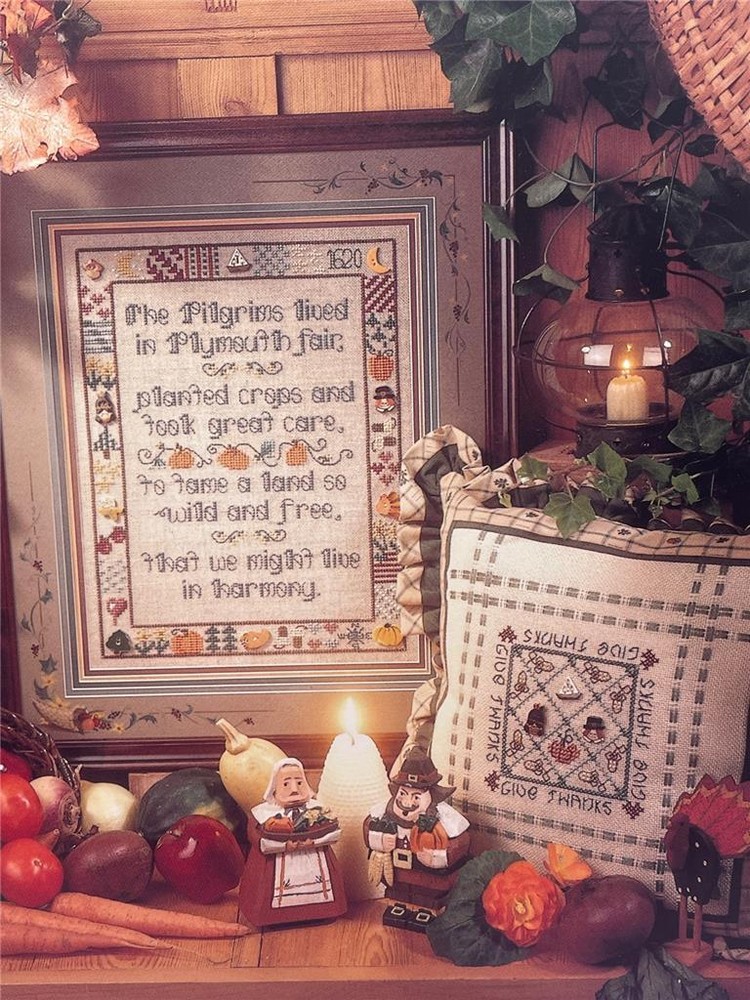 1620
The Pilgrims lived
in Plymouth fair,
planted crops and
took great care,
to tame a land so
wild and free,
that we might live
in harmony.
GIVE THANKS
GIVE THANKS
GIVE THANKS
GIVE THANKS